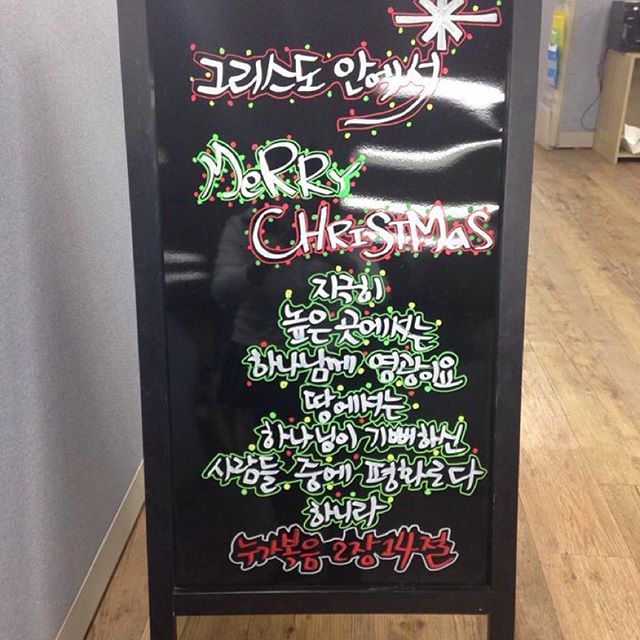 그리스도 안에서
MeRRy
CHRiSTMaS
지극히
높은 곳에서는
하나님께 영광이요
땅에서는
하나님이 기뻐하신
사람들 중에 평화로다
하니라
누가복음 2장 14절